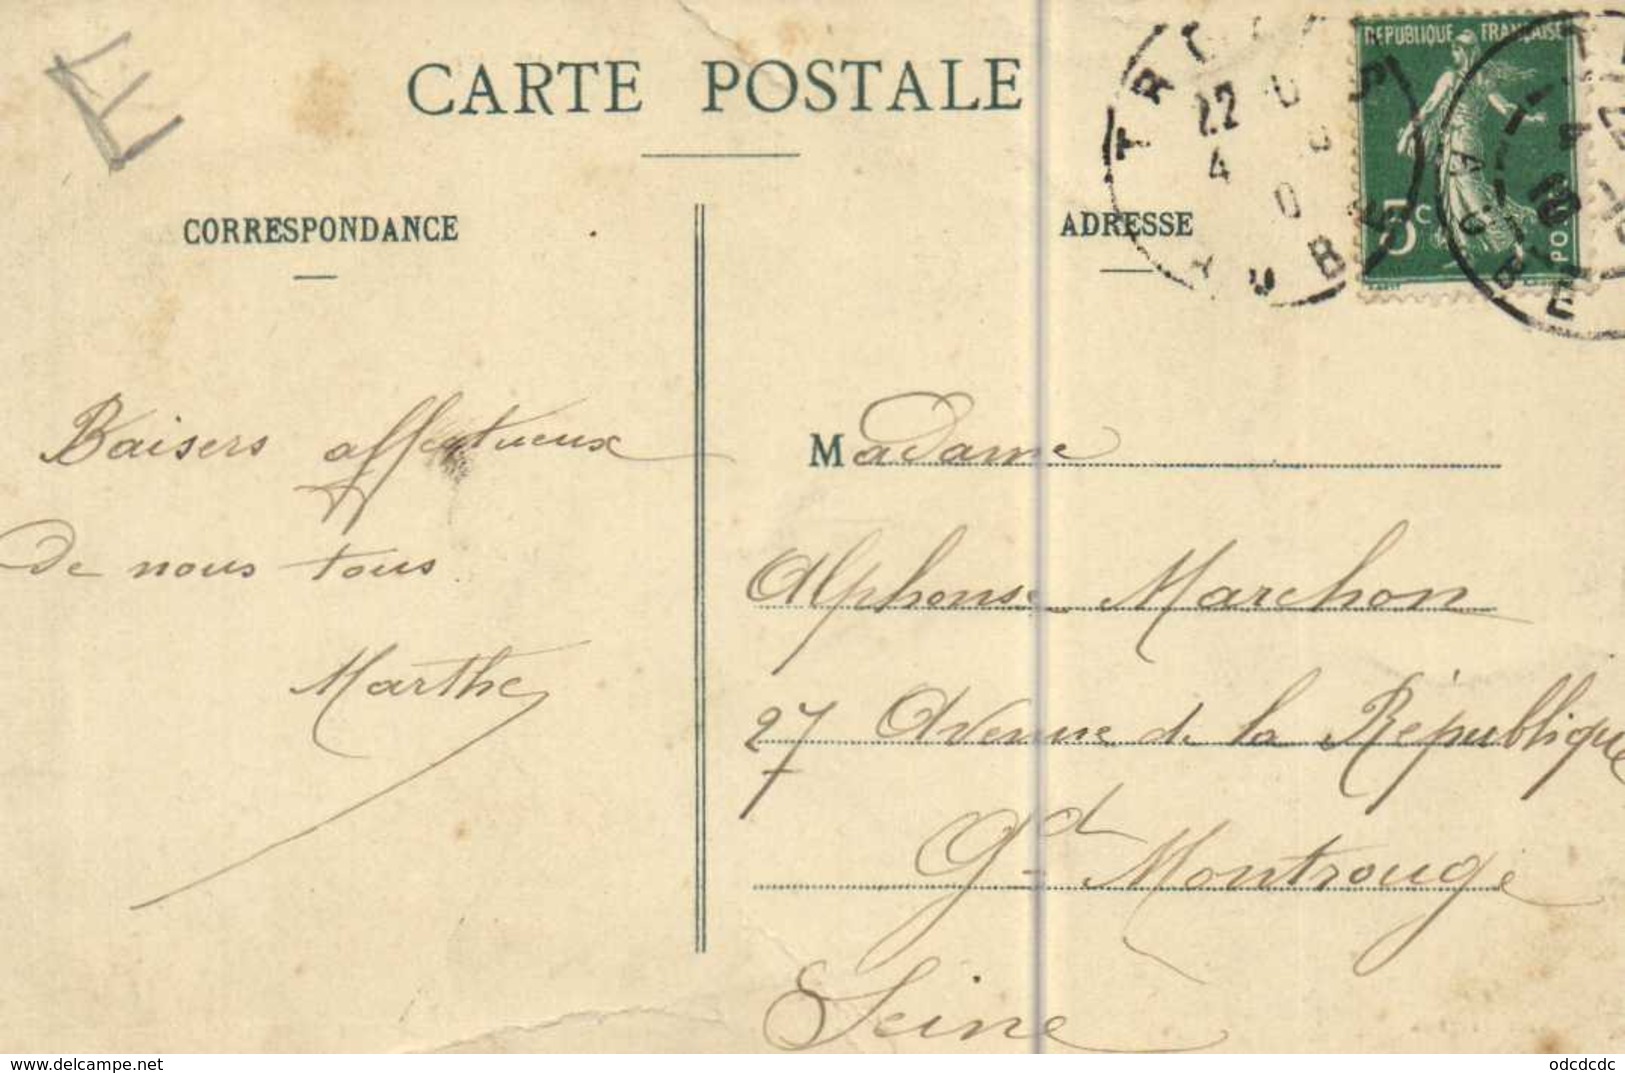 E
CARTE POSTALE
CORRESPONDANCE
ADRESSE
REPUBLIQUE FRANÇAISE
5c
22
4
AUBE
Baisers affectueux
de nous tous.
Marthe
Madame
Alphonse Marchon
27 Avenue de la République
Gd Montrouge
Seine
www.delcampe.net
odcdcdc